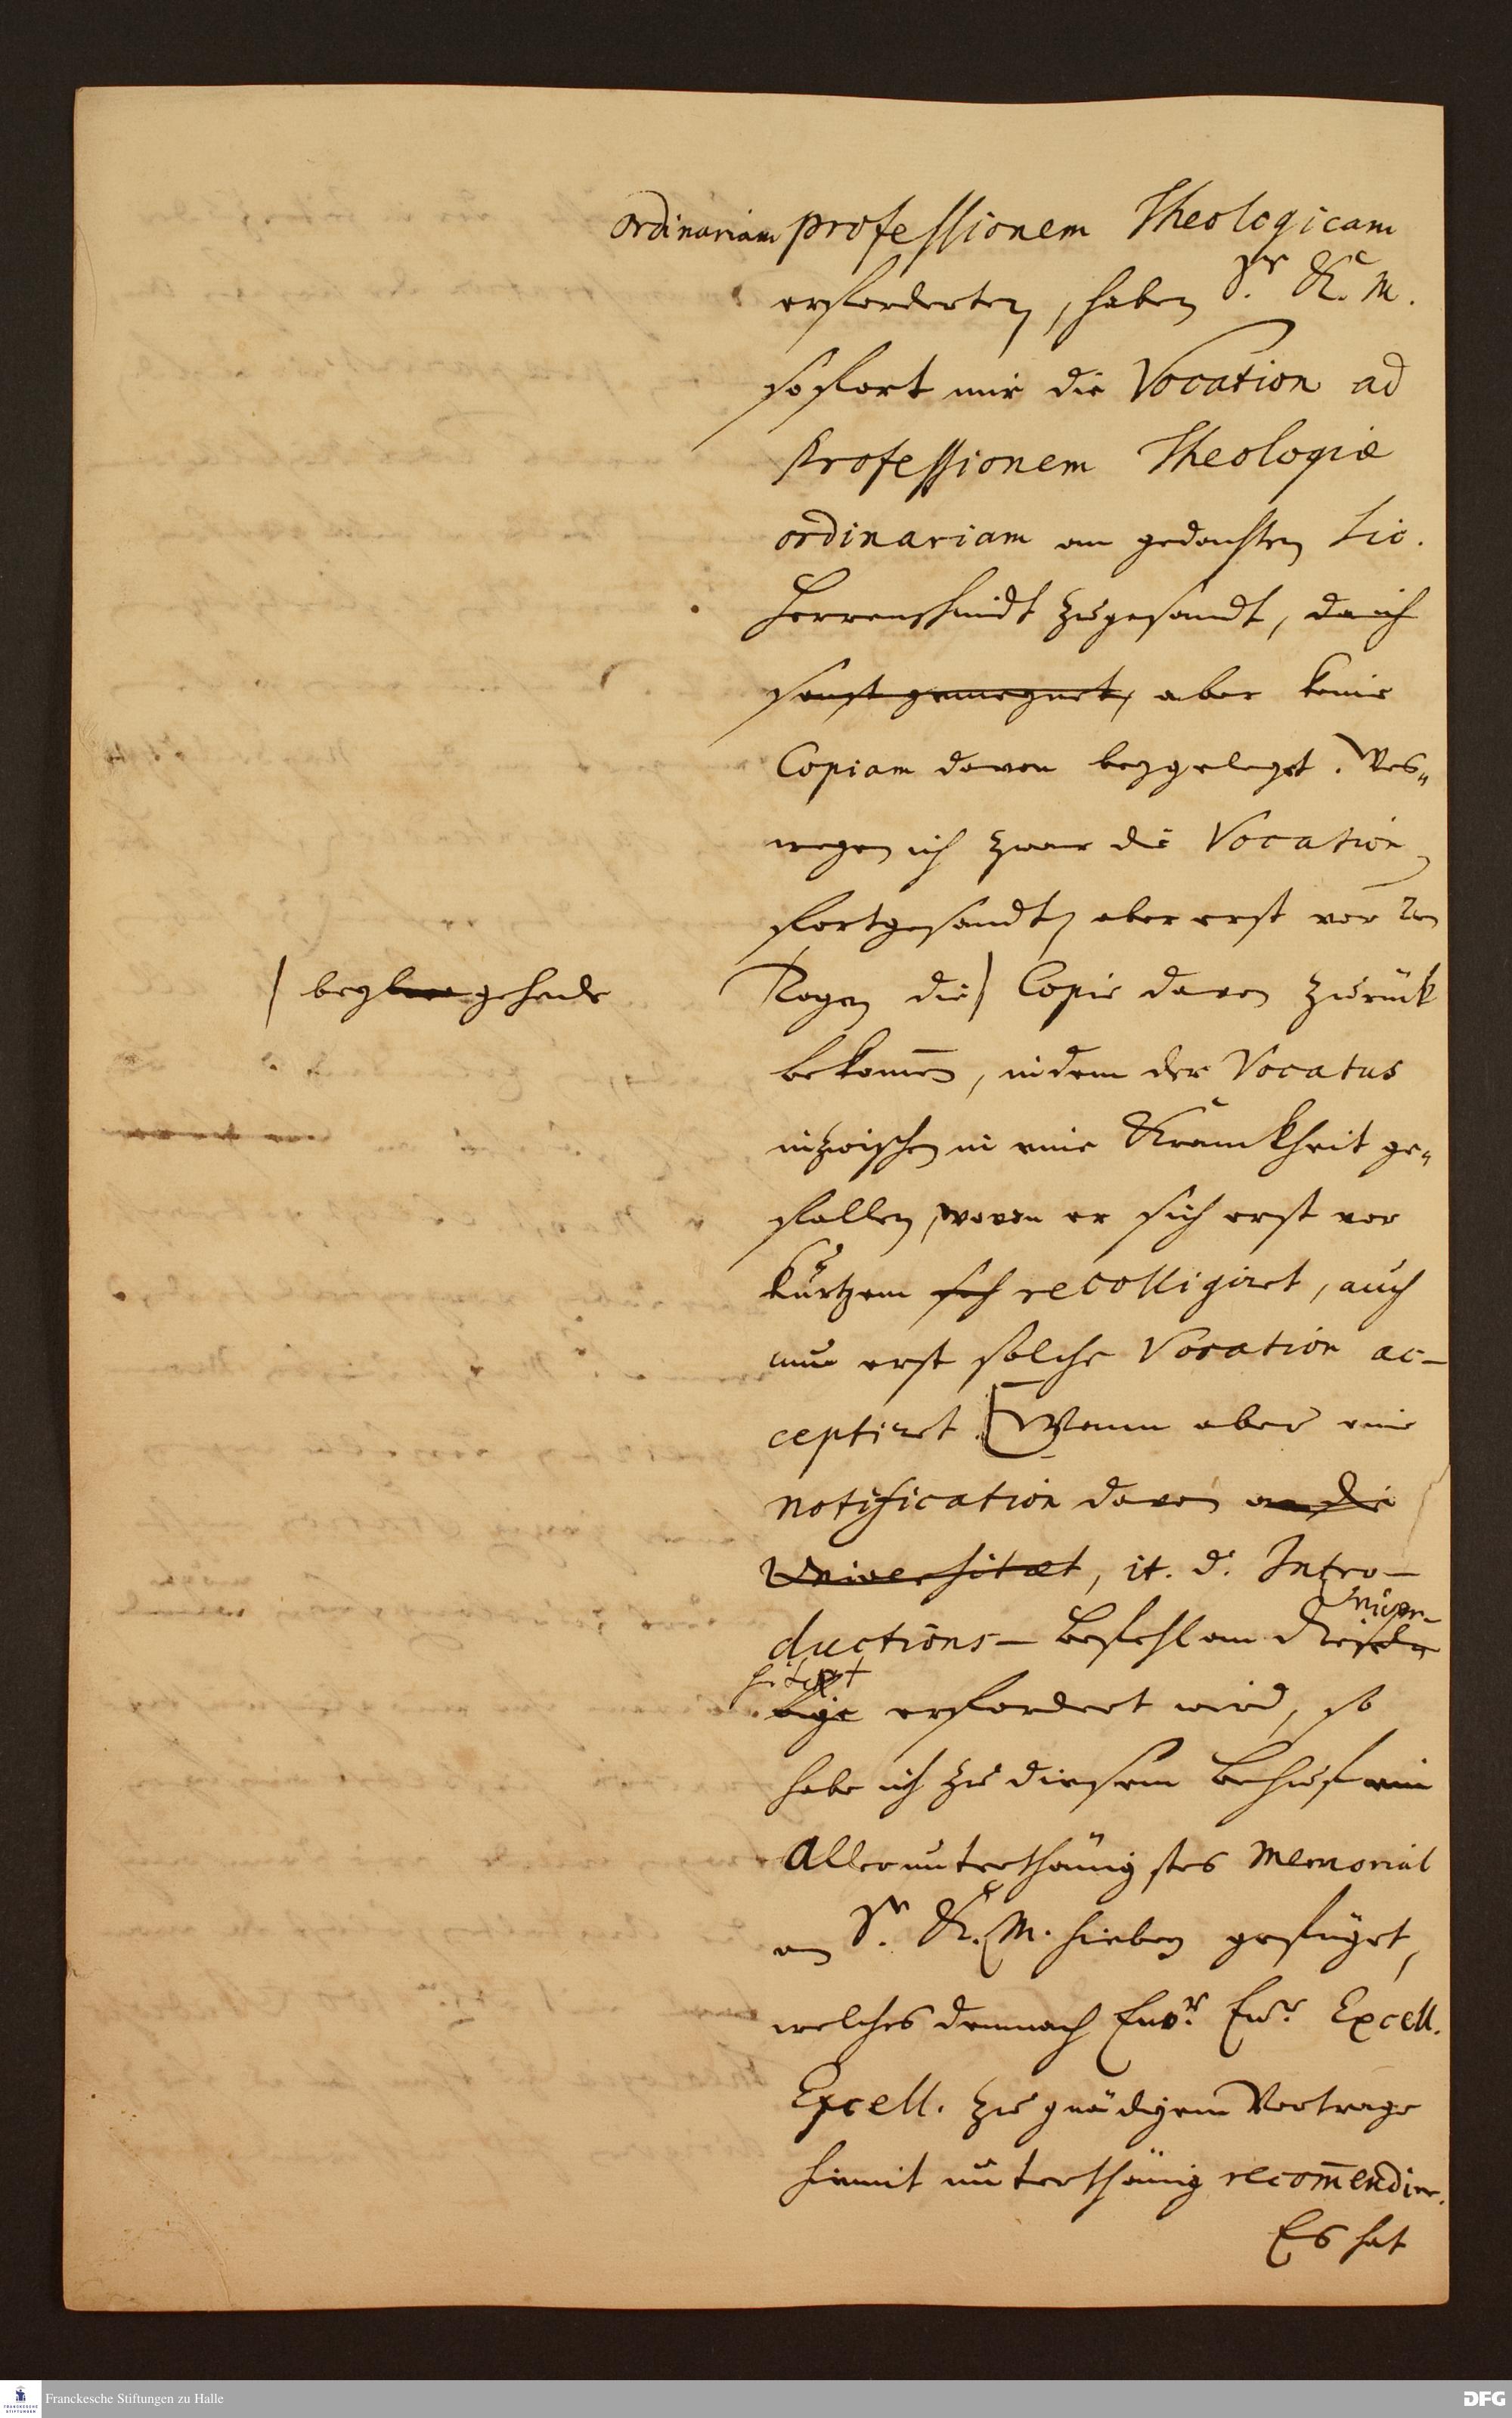 ordinariam professionem Theologicam
erforderten, haben Sr. K. M.
sofort mir die Vocation ad
Professionem Theologiæ
ordinariam an gedachten Lic.
Herrenschmidt zugesandt, da ich
sonst aber keine
Copiam davon beygeleget. Des„
wegen ich zwar die Vocation
fortgesandt, aber erst vor
Tagen die Copie davon zurück
beygehende
bekom̄en, indem der Vocatus
inzwischen in eine Kranckheit ge„
fallen, wovon er sich erst vor
kurtzem sich recolligiret, auch
nun erst solche Vocation ac-
ceptiret. Wenn aber eine
notification davon an die
Universitæt, it. d. Intro-
ductions- Befehl an die Univer-
sitæt erfordert wird, so
habe ich zu diesem Behuf ein
Allerunterthänigstes Memorial
an Sr. K. M. hiebey gefüget,
welches demnach Ew.r Ew.r Excell.
Excell. zu gnädigem Vortrage
hiemit unterthänig recom̄endire.
Es hat
Franckesche Stiftungen zu Halle
DFG